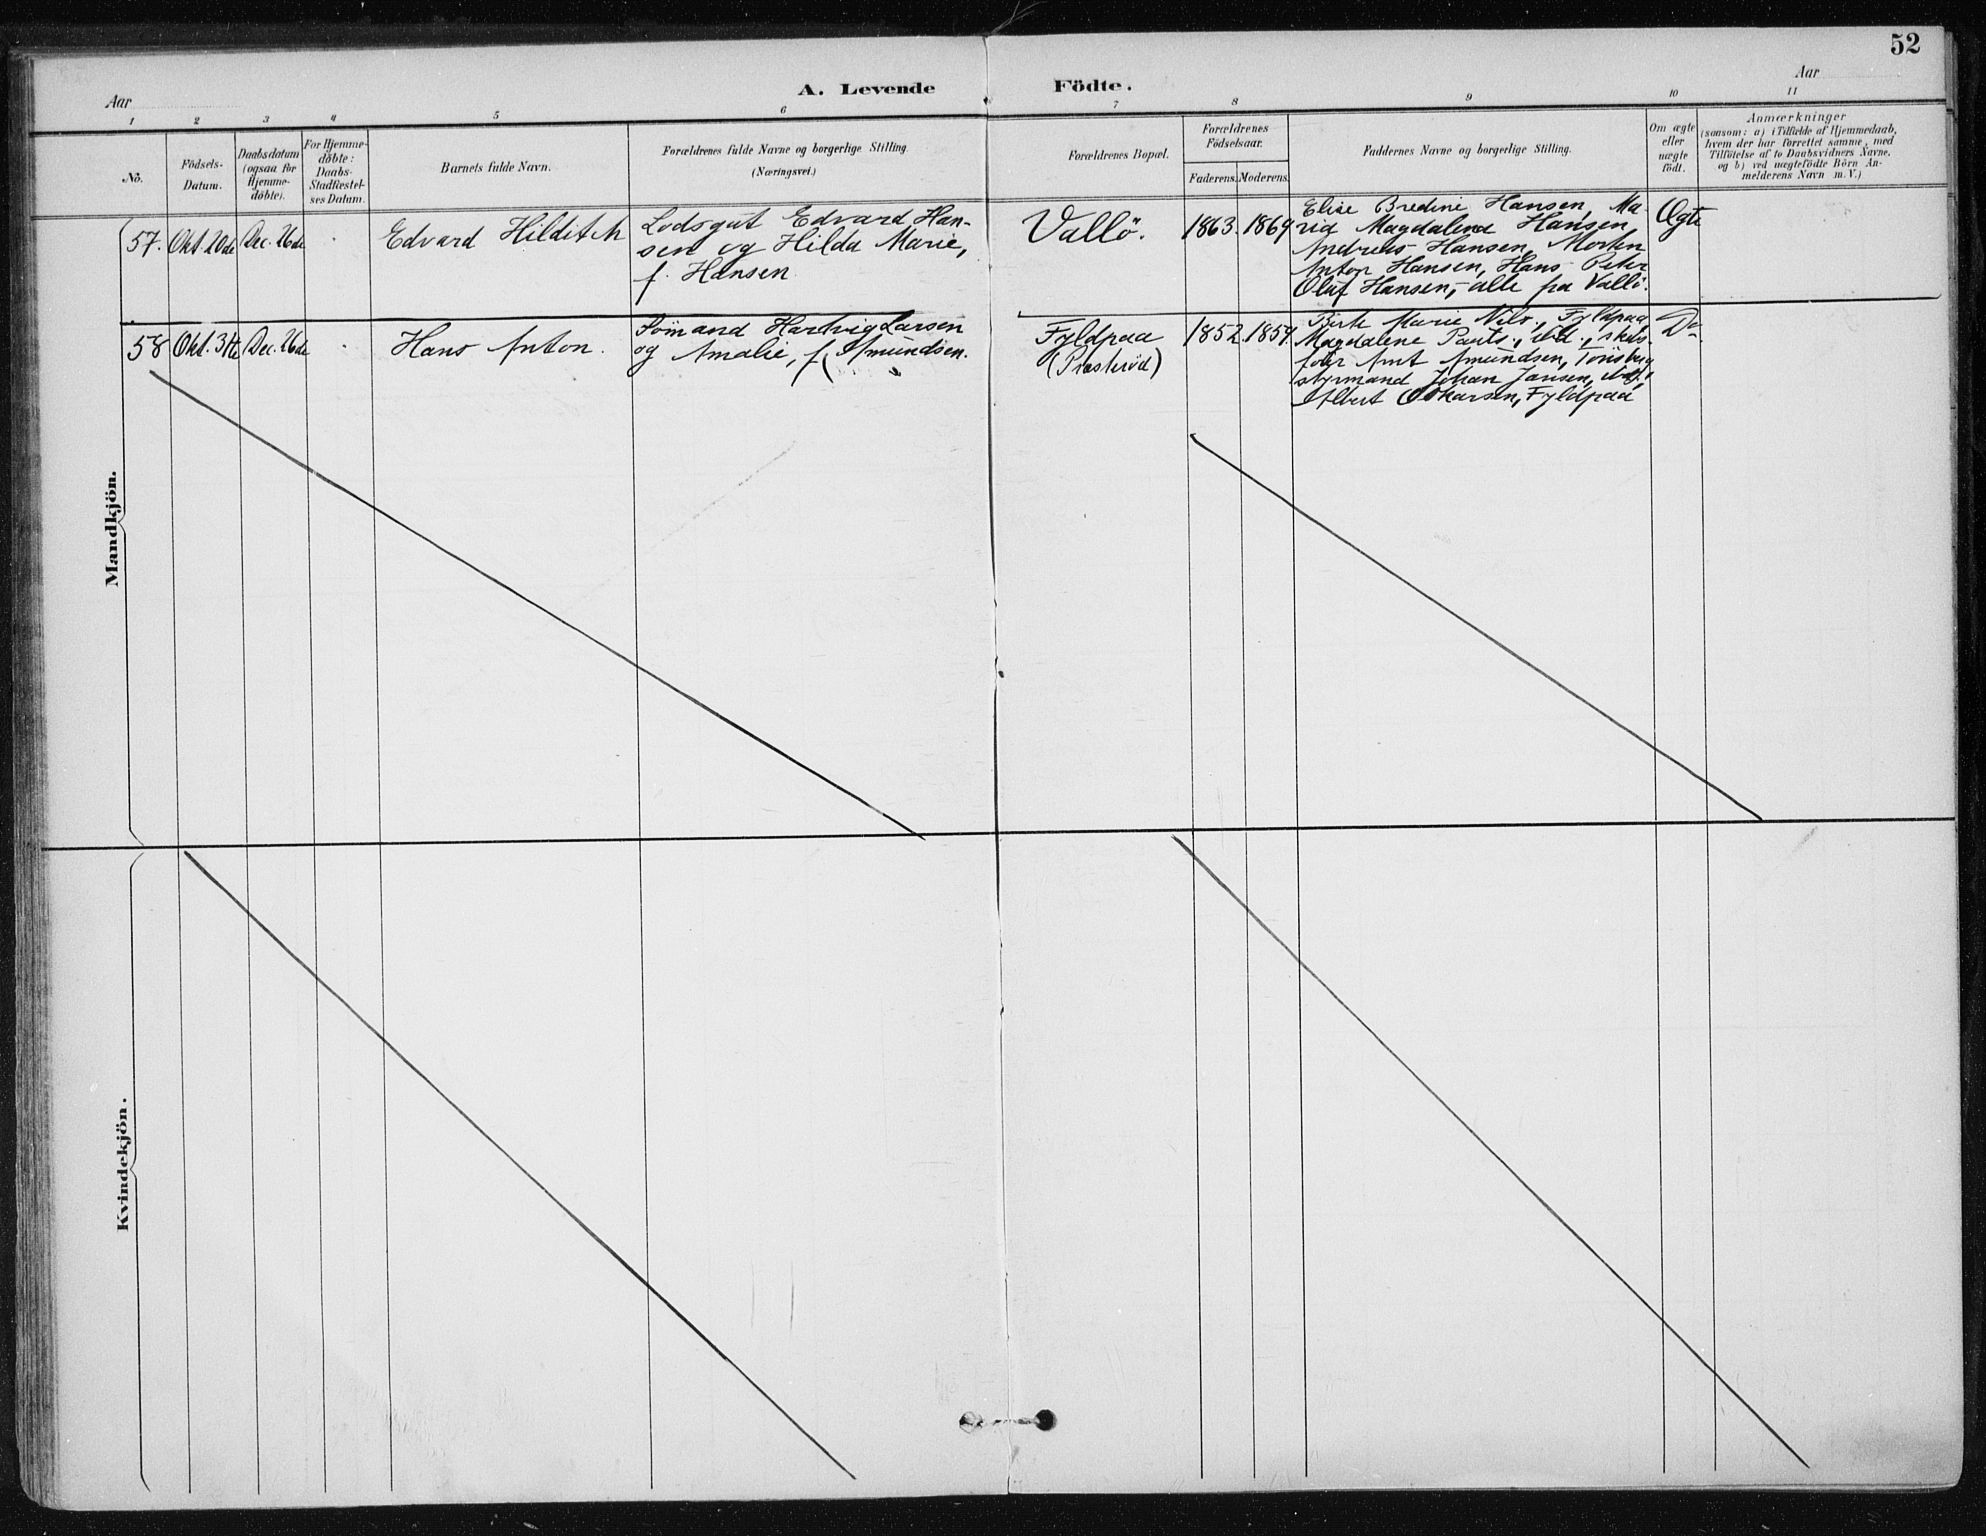 52
A. Levende Födte.
Aar
Aar
1 2 3 4 5 6 7 8 9 10 11
No.
Födsels-
Datum.
Daabsdatum
(ogsaa for
Hjemme-
döbte).
For Hjemme-
döbte:
Daabs-
Stadfæstel-
ses Datum.
Barnets fulde Navn.
Forældrenes fulde Navne og borgerlige Stilling
(Næringsvei.)
Forældrenes Bopæl.
Forældrenes
Födselsaar.
Faderens. Moderens.
Faddernes Navne og borgerlige Stilling.
Om ægte
eller
uægte
födt.
Anmærkninger
(saasom: a) i Tilfælde af Hjemmedaab,
hvem der har forrettet samme, med
Tilföielse af to Daabsvidners Navne.
og b) ved uægtefödte Börn An-
melderens Navn m.V.)
Mandkjön.
57. Okt. 20de Dec. 26de Edvard Hilditch
Lodsgut Edvard Han-
sen og Hilda Marie,
f. Hansen
Vallö. 1863. 1869
Elise Bredine Hansen, Ma-
ria Magdalena Hansen,
Andreas Hansen, Morten
Anton Hansen, Hans Peter
Oluf Hansen, - alle fra Vallö.
Ægte
58 Okt. 31te Dec. 26de Hans Anton.
Sömand Hartvig Larsen
og Amalie, f. Amundsen.
Fyldpaa
(Præsteröd)
1852. 1859
Berte Marie Nils., Fyldpaa
Magdalene Pauls., ibid.,
Amt Amundsen, Tönsberg
styrmand Johan Jansen, ibid.,
Albert Oskarsen, Fyldpaa
Do
Kvindekjön.